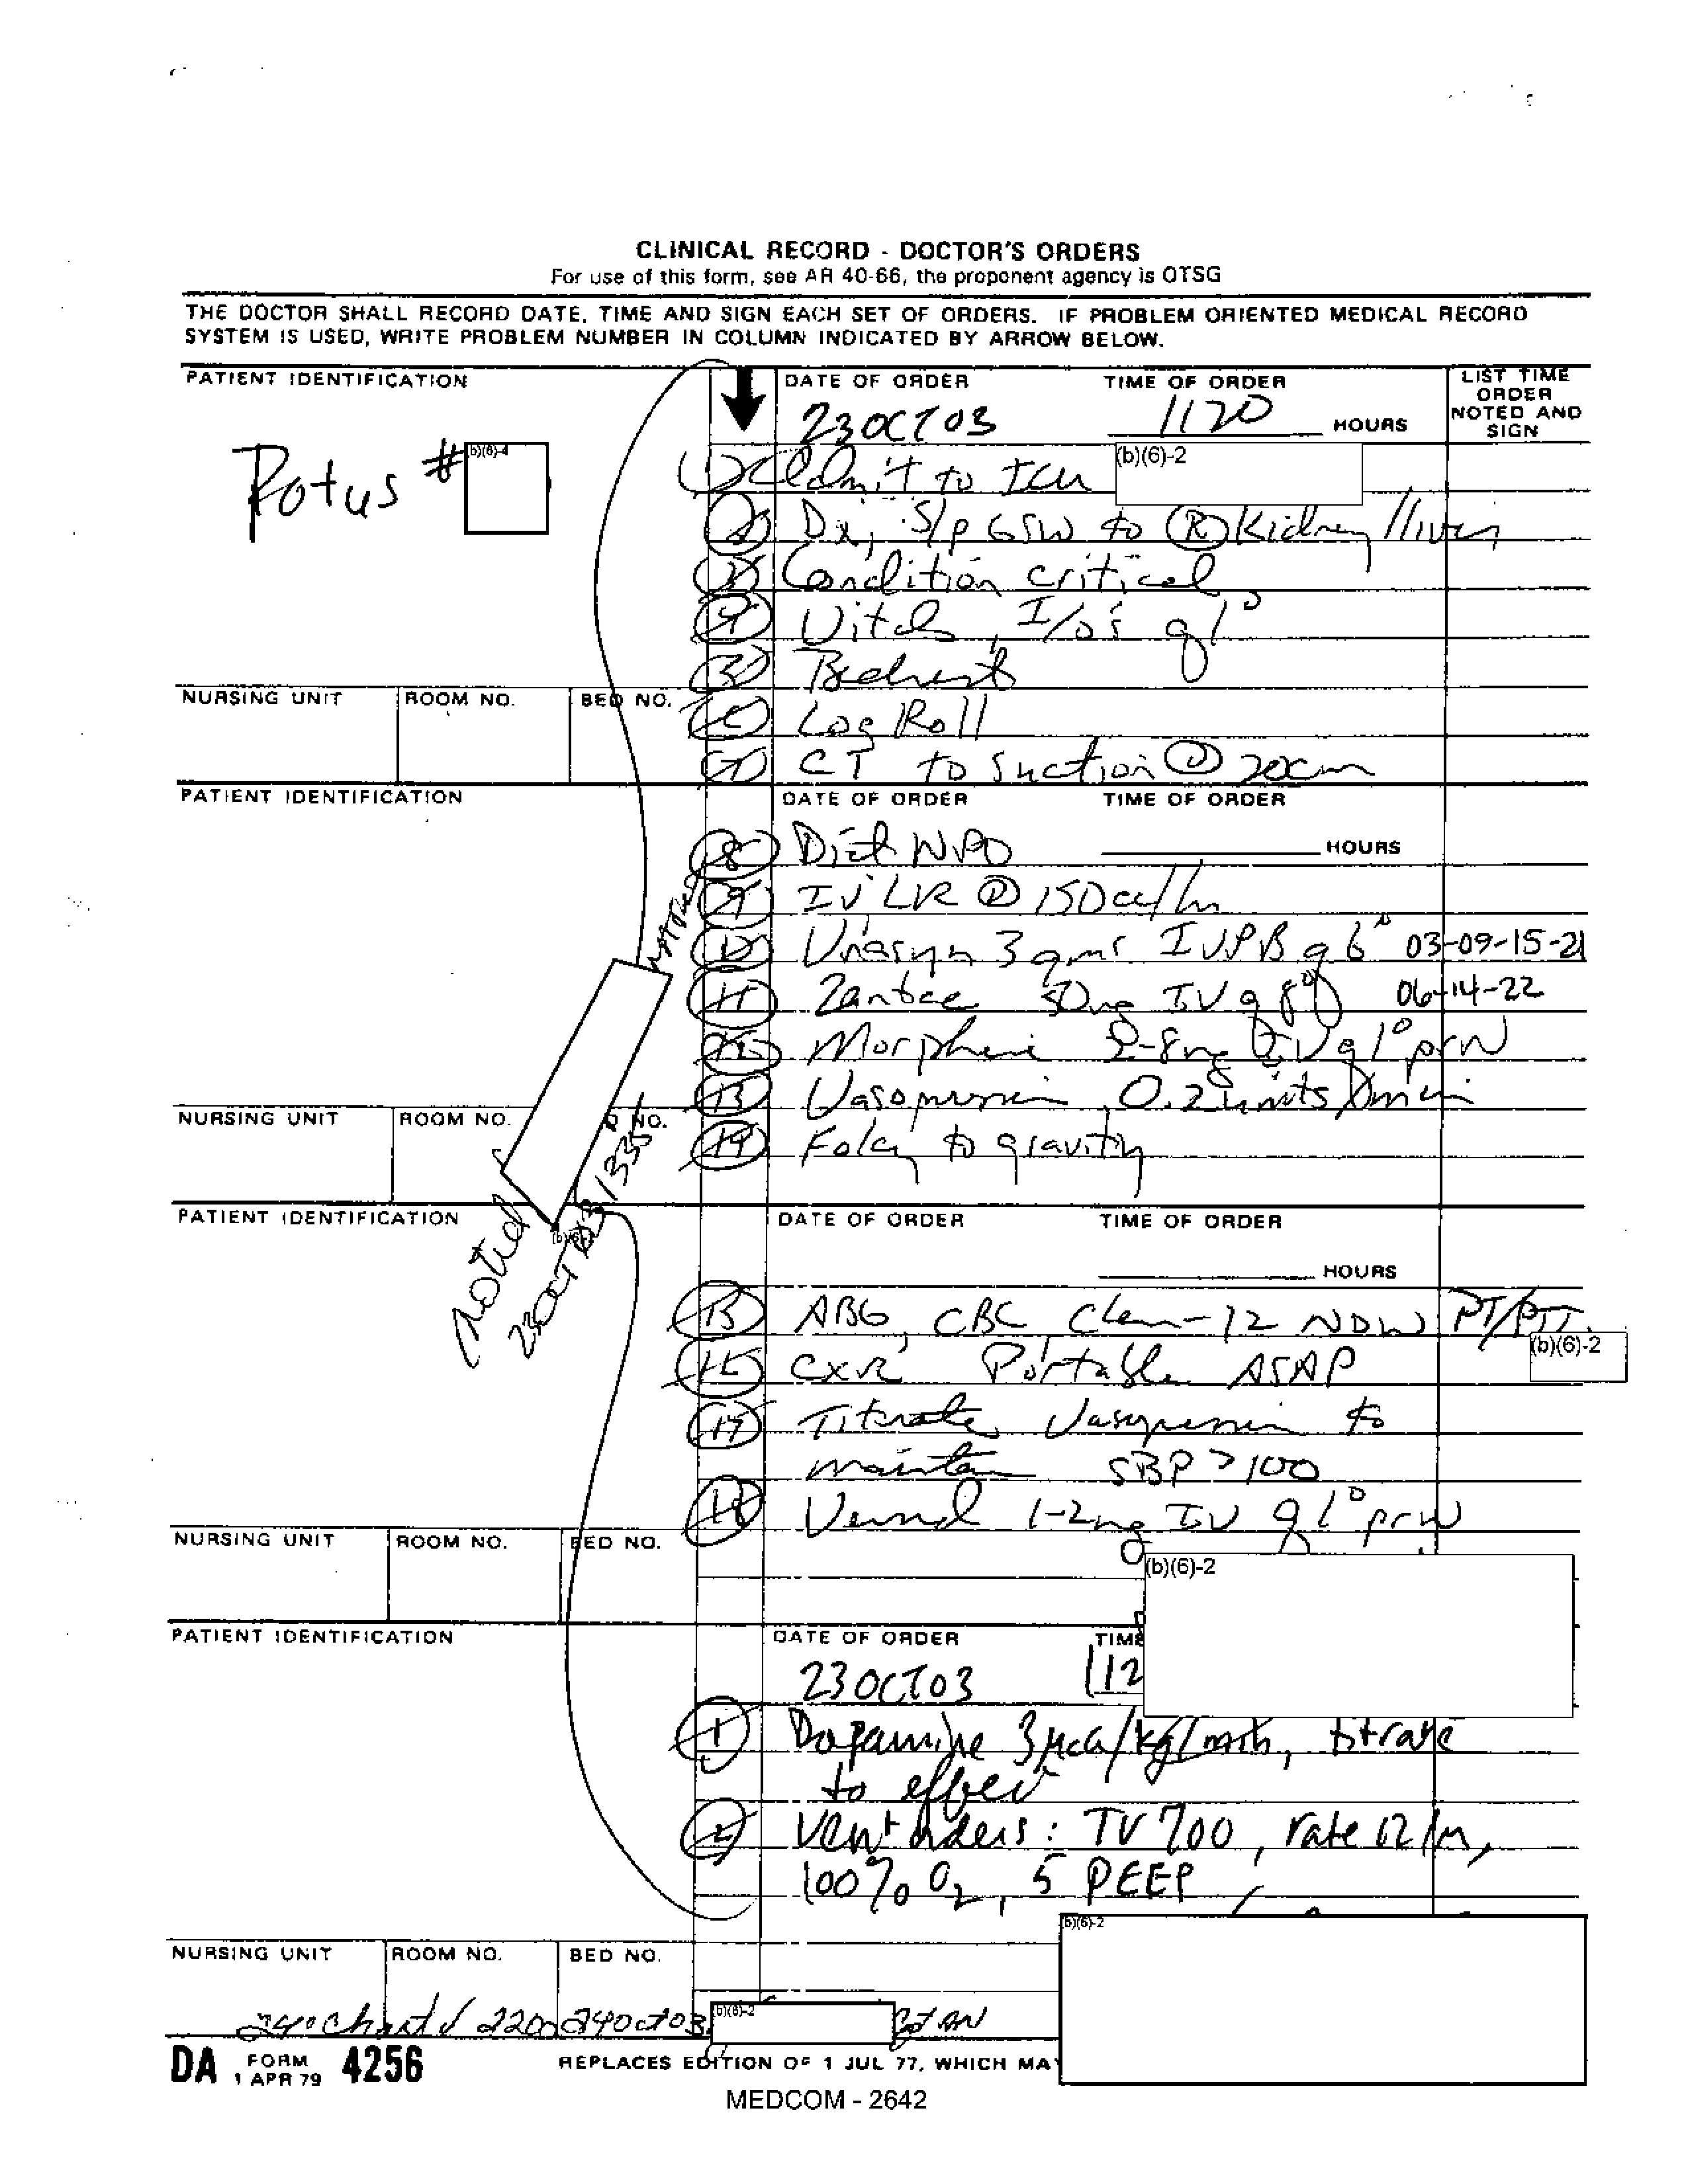 CLINICAL RECORD - DOCTOR'S ORDERS
For use of this form, see AR 40-66, the proponent agency is OTSG
THE DOCTOR SHALL RECORD DATE, TIME AND SIGN EACH SET OF ORDERS. IF PROBLEM ORIENTED MEDICAL RECORD
SYSTEM IS USED, WRITE PROBLEM NUMBER IN COLUMN INDICATED BY ARROW BELOW.
PATIENT IDENTIFICATION
DATE OF ORDER
TIME OF ORDER
LIST TIME
ORDER
NOTED AND
SIGN
23 OCT 03
1120 HOURS
Potus # (b)(6)-4
1) Admit to ICU (b)(6)-2
2) Dx, S/p GSW to (R) Kidney / liver
3) Condition critical
4) Vitals, I/O's q 1°
5) Bedrest
NURSING UNIT
ROOM NO.
BED NO.
6) Log Roll
7) CT to Suction @ 20cm
PATIENT IDENTIFICATION
DATE OF ORDER
TIME OF ORDER
HOURS
8) Diet NPO
9) IV LR @ 150cc/hr
10) Unasyn 3 gms IVPB q 6° 03-09-15-21
11) Zantac 50mg IV q 8° 06-14-22
12) Morphine 2-8mg IV q 1° prn
13) Vasopressin 0.2 units/min
NURSING UNIT
ROOM NO.
NO.
14) Foley to gravity
noted
23OCT03 1335
PATIENT IDENTIFICATION
DATE OF ORDER
TIME OF ORDER
HOURS
15) ABG, CBC Chem-12 NOW PT/PTT
(b)(6)-2
16) CXR Portable ASAP
17) Titrate Vasopressin to
maintain SBP > 100
18) Versed 1-2mg IV q 1° prn
NURSING UNIT
ROOM NO.
BED NO.
(b)(6)-2
PATIENT IDENTIFICATION
DATE OF ORDER
TIME
23 OCT 03
112
1) Dopamine 3 mcg/kg/min, titrate
to effect
2) Vent orders: TV 700, rate 12/m,
100% O2, 5 PEEP
(b)(6)-2
NURSING UNIT
ROOM NO.
BED NO.
24° chart √ 2200 24Oct03 (b)(6)-2
DA FORM 4256
1 APR 79
REPLACES EDITION OF 1 JUL 77, WHICH MAY
MEDCOM - 2642